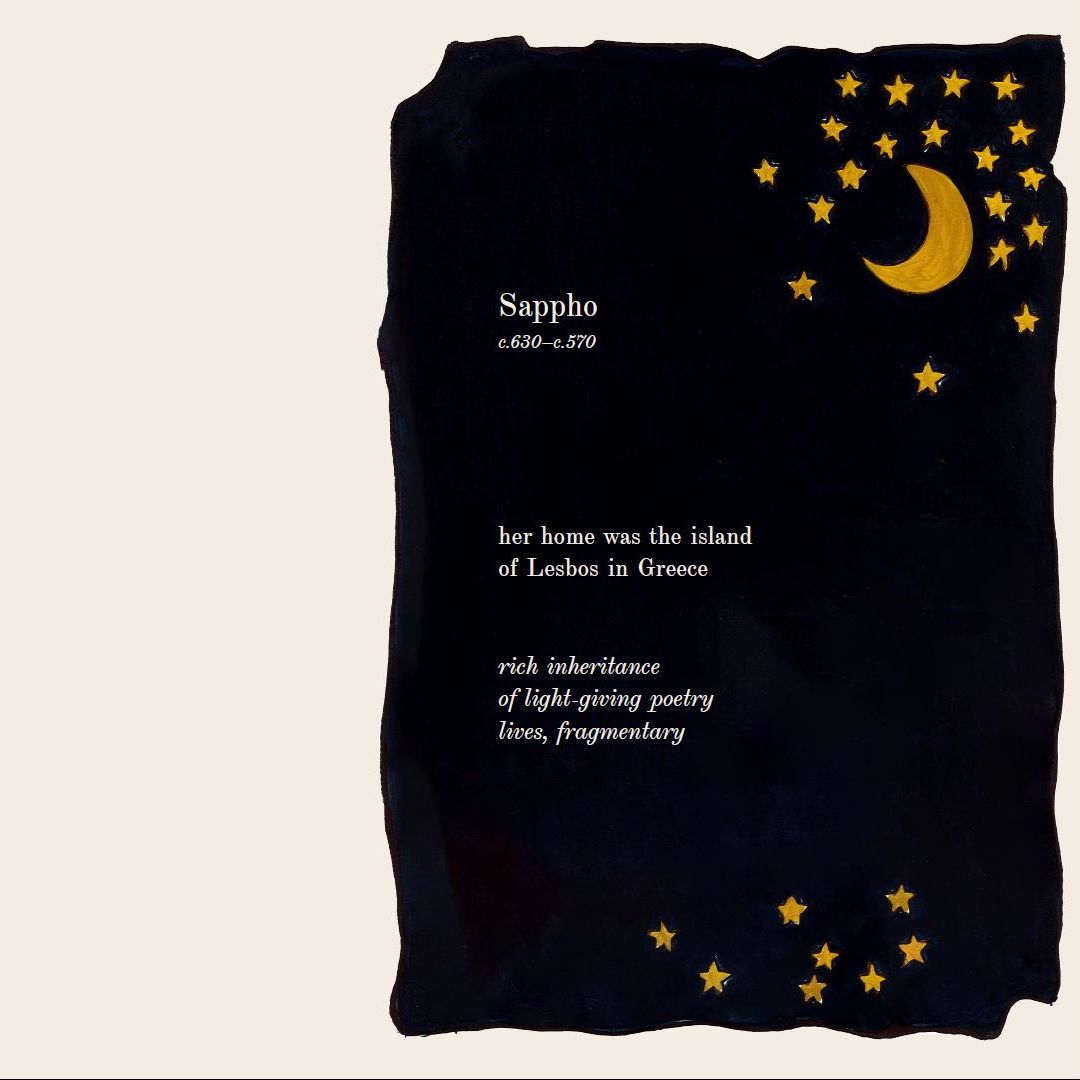 Sappho
c.630–c.570
her home was the island
of Lesbos in Greece
rich inheritance
of light-giving poetry
lives, fragmentary